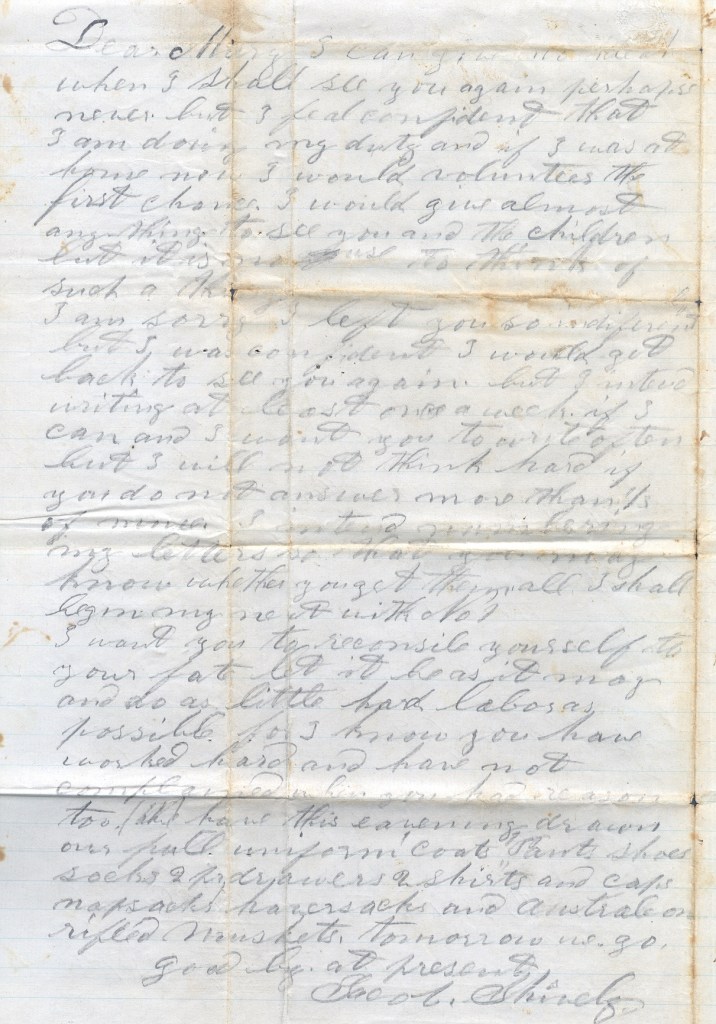 Dear Mary I can give no idea
when I shall see you again perhaps
never but I feal confident that
I am doing my duty and if I was at
home now I would volunteer the
first chance I would give almost
any thing to see you and the children
but it is no use to think of
such a thing
I am sorry I left you so indiferent
but I was confident I would get
back to see you again. but I intend
writing at least once a week if I
can and I want you to write often
but I will not think hard if
you do not answer more than
of mine. I intend numbering
my letters so that you may
know whether you get them all I shall
begin my next with No 1
I want you to reconsile yourself to
your fate let it be as it may
and do as little hard labor as
possible for I know you have
worked hard and have not
complained when you had reason
too. We have this evening drawn
our full uniform coats Pants shoes
socks 2 pr drawers 2 shirts and caps
napsacks haversacks and
rifled muskets. tomorrow we go.
good by. at present
Jacob Shively